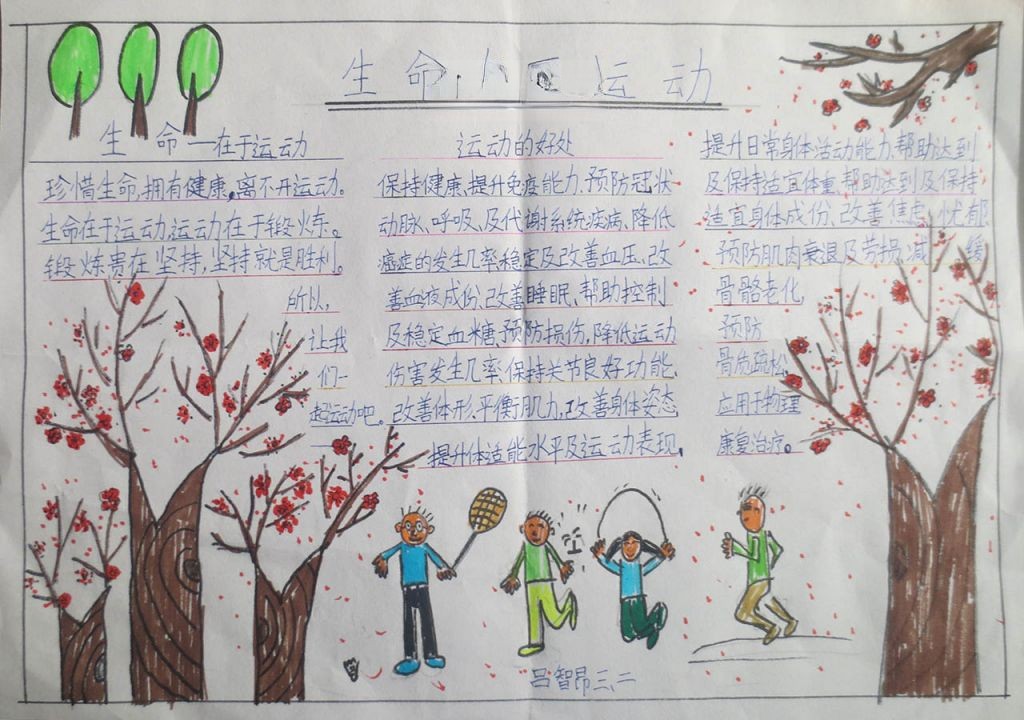 生命 运动
生命—在于运动
珍惜生命,拥有健康,离不开运动。
生命在于运动,运动在于锻炼。
锻炼贵在坚持,坚持就是胜利。
所以,
让我
们一
起运动吧。
运动的好处
保持健康、提升免疫能力、预防冠状
动脉、呼吸、及代谢系统疾病、降低
癌症的发生几率稳定及改善血压、改
善血液成份、改善睡眠、帮助控制
及稳定血糖、预防损伤,降低运动
伤害发生几率、保持关节良好功能、
改善体形、平衡肌力、改善身体姿态
提升体适能水平及运动表现、
提升日常身体活动能力、帮助达到
及保持适宜体重、帮助达到及保持
适宜身体成份、改善焦虑、忧郁
预防肌肉衰退及劳损、减缓
骨骼老化,
预防
骨质疏松、
应用于物理
康复治疗。
吕智昂三、二